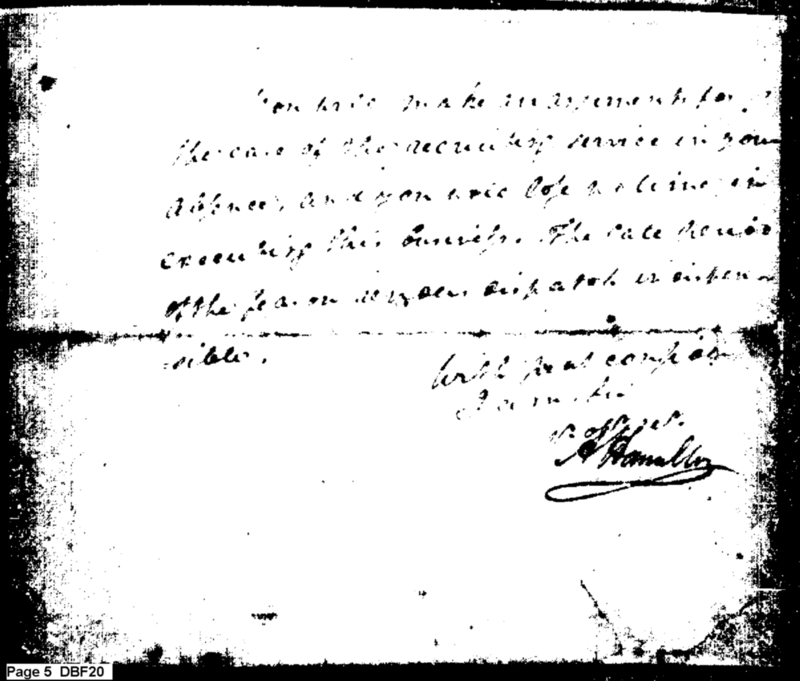 You will make arrangements for
the care of the recruiting service in your
absence, and you will lose no time in
executing this business. The late period
of the season renders dispatch indispen-
sible.
With great consider
I am Sir
A Hamilton
Page 5 DBF20